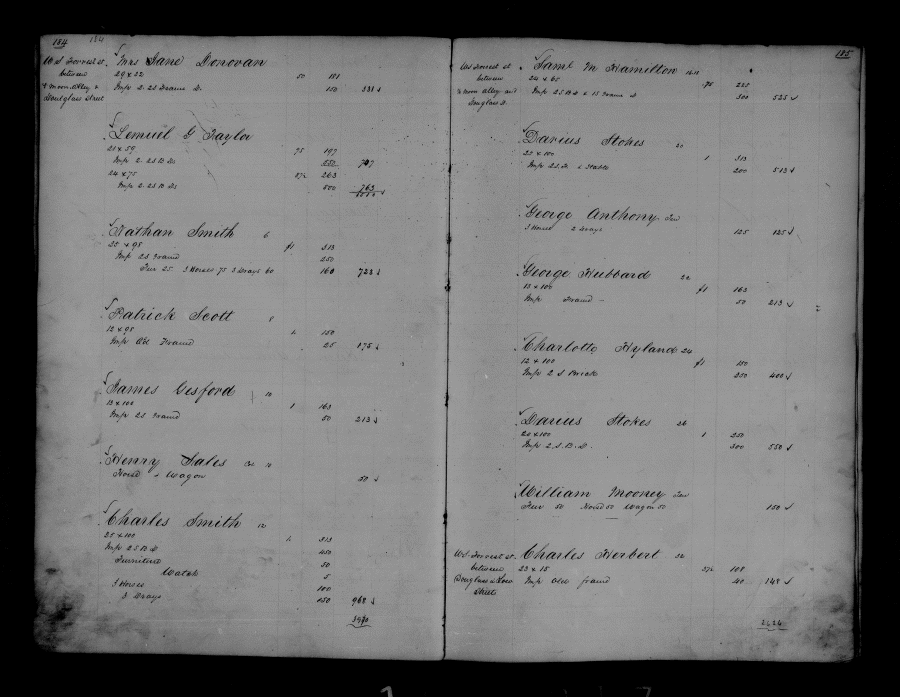 184 184
W S Forrest st. Mrs Jane Donovan
between 29 x 22 50 181
& moon Alley & Imp 2. 2S Frame D. 150 331
Douglass Street
Lemuel G Taylor
21 x 59 75 197
Imp 2. 2S B Ds 550
24 x 75 263
Imp 2. 2S B Ds 500 763
Nathan Smith 6
25 x 98 $1 313
Imp 2S Framd 250
Fur 25. 3 Horses 75 3 Drays 60 160 723
Patrick Scott 8
12 x 98 1. 150
Imp Old Framd 25 175
James Gesford 10
13 x 100 1 163
Imp 2S Framd 50 213
Henry Sales 10
Horse & Wagon 50
Charles Smith 12
25 x 100 1. 313
Imp 2 S B D 450
Furniture 50
Watch 5
3 Horses 100
3 Drays 50 968
185
W S Forrest st Saml M Hamilton 16.18
between 24 x 65 75 225
& moon Alley and Imp 2S B D & 1S Frame D 300 525
Douglass st.
Darius Stokes 20
25 x 100 1 313
Imp 2S. & Stable 200 513
George Anthony
3 Horses 2 Drays 125 125
George Hubbard 22
13 x 100 $1 163
Imp Framd 50 213
Charlotte Hyland 24
12 x 100 $1 150
Imp 2 S Brick 250 400
Darius Stokes 26
20 x 100 1 250
Imp 2. S. B. D. 300 550
William Mooney
Fur 50 Horse 50 Wagon 50 150
W S. Forrest st. Charles Herbert 32
between 23 x 15 108
Douglass & Imp Old framd 40 148
Street
2624